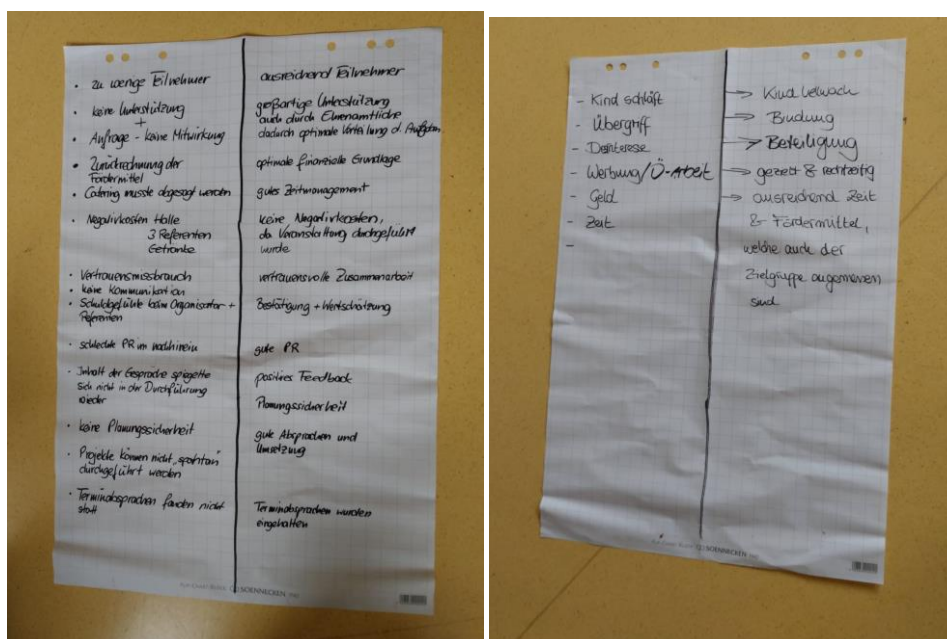 • zu wenige Teilnehmer
• keine Unterstützung
+
• Anfrage - keine Mitwirkung
• Zurückrechnung der
Fördermittel
• Catering musste abgesagt werden
• Negativkosten Halle
3 Referenten
Getränke
• Vertrauensmissbrauch
• keine Kommunikation
• Schuldgefühle beim Organisator +
Referenten
• schlechte PR im nachhinein
• Inhalt der Gespräche spiegelte
sich nicht in der Durchführung
wieder
• keine Planungssicherheit
• Projekte können nicht „spontan"
durchgeführt werden
• Terminabsprachen fanden nicht
statt
ausreichend Teilnehmer
großartige Unterstützung
auch durch Ehrenamtliche
dadurch optimale Verteilung d. Aufgaben
optimale finanzielle Grundlage
gutes Zeitmanagement
keine Negativkosten,
da Veranstaltung durchgeführt
wurde
vertrauensvolle Zusammenarbeit
Bestätigung + Wertschätzung
gute PR
positives Feedback
Planungssicherheit
gute Absprachen und
Umsetzung
Terminabsprachen wurden
eingehalten
SOENNECKEN
- Kind schläft
- Übergriff
- Desinteresse
- Werbung/Ö-Arbeit
- Geld
- Zeit
-
→ Kind
→ Bindung
→ Beteiligung
→ gezielt & rechtzeitig
→ ausreichend Zeit
& Fördermittel,
welche auch der
Zielgruppe angemessen
sind
SOENNECKEN